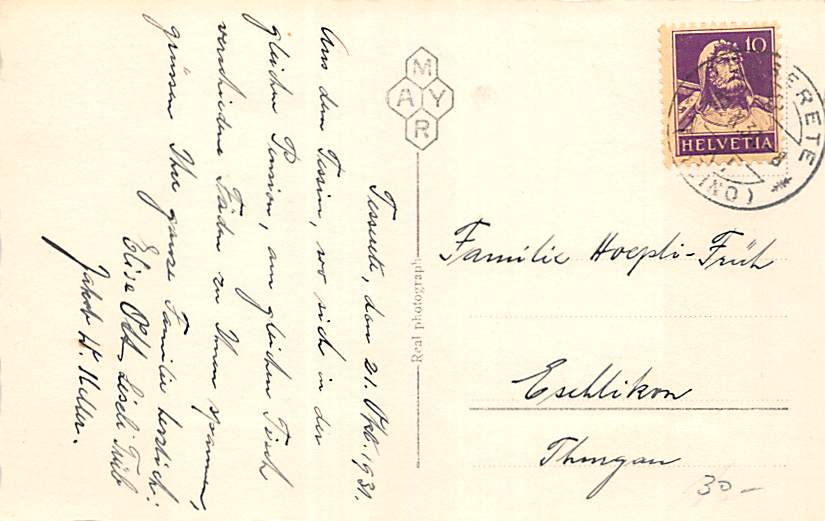 Tesserete, den 21. Okt. 1931.
Aus dem Tessin, wo sich in der
gleichen Pension, am gleichen Tisch
verschiedene Fäden zu Ihnen spannen,
grüssen Ihre ganze Familie herzlich:
Elise Ott, Liseli Trüb
Jakob W. Keller.
MAYR
Real photograph
10
HELVETIA
Familie Hoepli-Früh
Eschlikon
Thurgau
30-